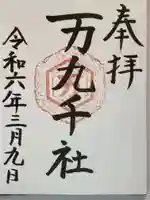 奉拝
万九千社
令和六年三月九日